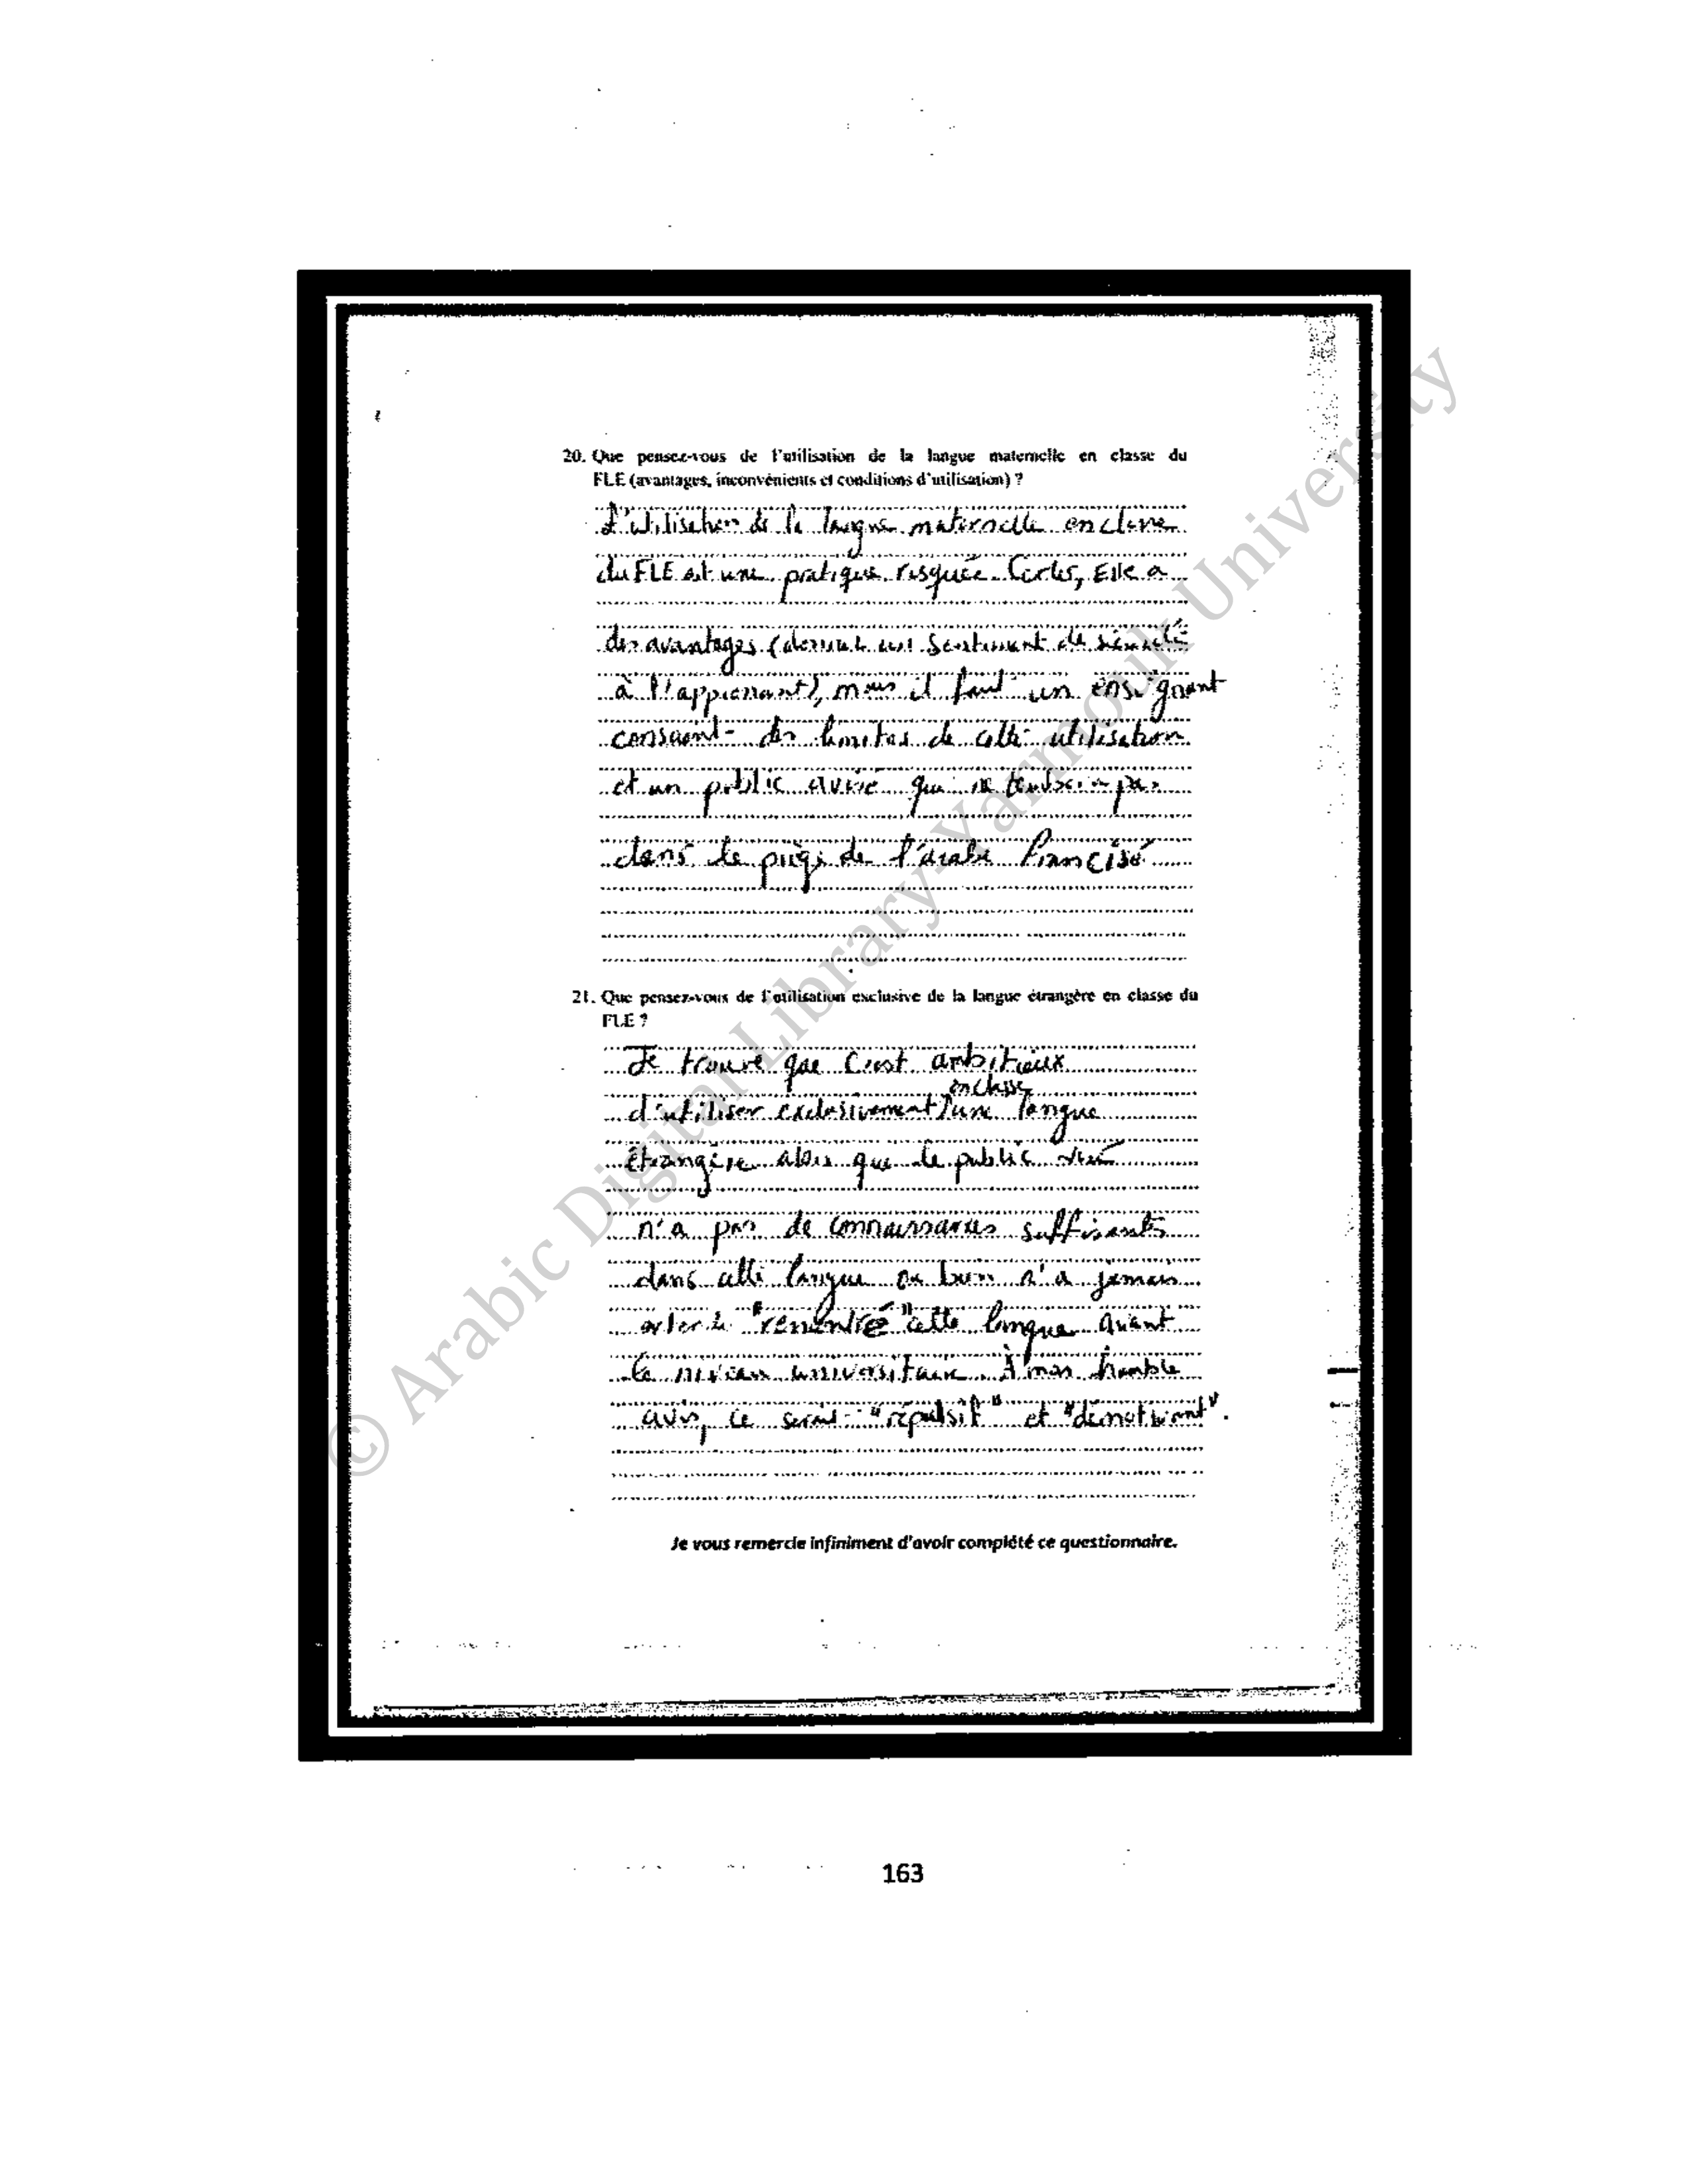 20. Que pensez-vous de l'utilisation de la langue maternelle en classe du
FLE (avantages, inconvénients et conditions d'utilisation) ?
L'utilisation de la langue maternelle en classe
du FLE est une pratique risquée. Certes, Elle a
des avantages (donne un sentiment de sécurité
à l'apprenant), mais il faut un enseignant
conscient des limites de cette utilisation
et un public avisé qui ne tombera pas
dans le piège de l'arabe francisé
21. Que pensez-vous de l'utilisation exclusive de la langue étrangère en classe du
FLE ?
Je trouve que c'est ambitieux
en classe
d'utiliser exclusivement une langue
étrangère alors que le public visé
n'a pas de connaissances suffisantes
dans cette langue ou bien n'a jamais
"rencontré" cette langue avant
le niveau universitaire. À mon humble
avis, ce serait "répulsif" et "démotivant".
Je vous remercie infiniment d'avoir complété ce questionnaire.
163
© Arabic Digital Library-Yarmouk University